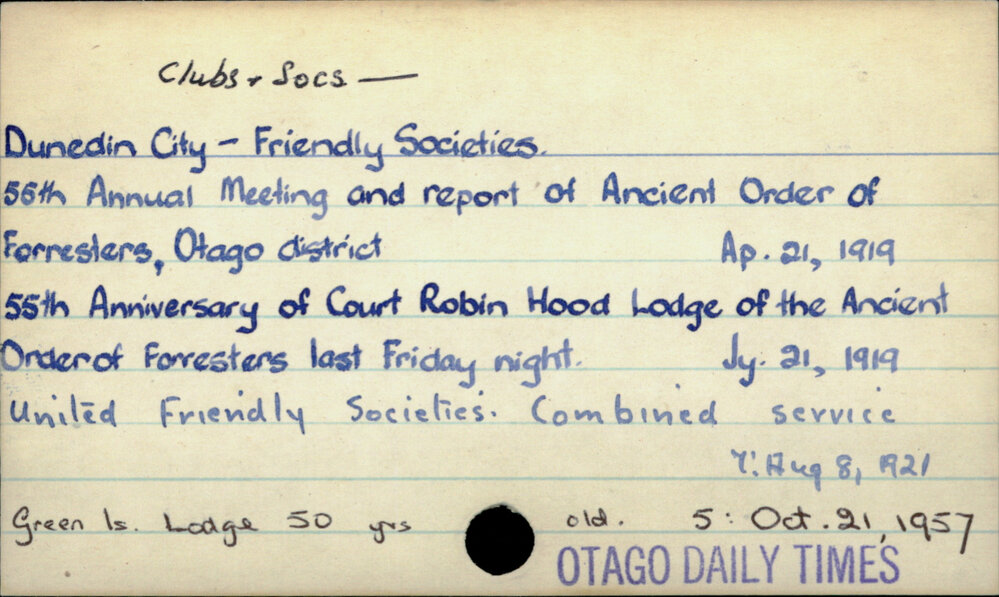 Clubs + Socs —
Dunedin City - Friendly Societies.
56th Annual Meeting and report of Ancient Order of
Forresters, Otago district Ap. 21, 1919
55th Anniversary of Court Robin Hood Lodge of the Ancient
Order of Forresters last Friday night. Jy. 21, 1919
United Friendly Societies. Combined service
7: Aug 8, 1921
Green Is. Lodge 50 yrs old. 5: Oct. 21, 1957
OTAGO DAILY TIMES